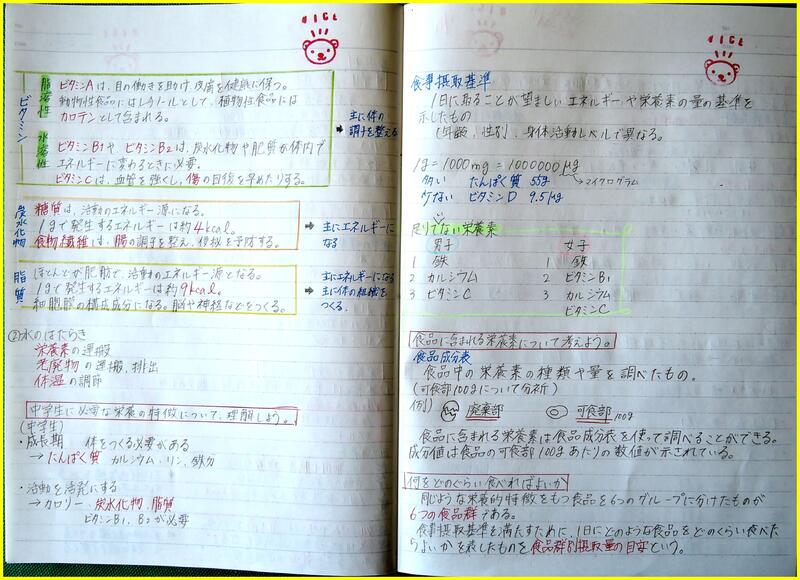 NICE
ビタミン
脂溶性
ビタミンAは、目の働きを助け、皮膚を健康に保つ。
動物性食品にはレチノールとして、植物性食品には
カロテンとして含まれる。
水溶性
ビタミンB1や、ビタミンB2は、炭水化物や脂質が体内で
エネルギーに変わるときに必要。
ビタミンCは、血管を強くし、傷の回復を早めたりする。
➡ 主に体の
調子を整える
炭水化物
糖質は、活動のエネルギー源になる。
1gで発生するエネルギーは約4kcal。
食物繊維は、腸の調子を整え、便秘を予防する。
➡ 主にエネルギーに
なる
脂質
ほとんどが脂肪で、活動のエネルギー源となる。
1gで発生するエネルギーは約9kcal。
細胞膜の構成成分になる。脳や神経などをつくる。
➡ 主にエネルギーになる
主に体の組織を
つくる。
②水のはたらき
栄養素の運搬
老廃物の運搬、排出
体温の調節
中学生に必要な栄養の特徴について、理解しよう。
(中学生)
・成長期 体をつくる必要がある
→たんぱく質 カルシウム、リン、鉄分
・活動を活発にする
→カロリー、炭水化物、脂質
ビタミンB1、B2が必要
NICE
食事摂取基準
1日に取ることが望ましいエネルギーや栄養素の量の基準を
示したもの
(年齢、性別、身体活動レベルで異なる。
1g=1000mg=1000000μg
→マイクログラム
多い たんぱく質 55g
少ない ビタミンD 9.5μg
足りてない栄養素
男子 女子
1 鉄 1 鉄
2 カルシウム 2 ビタミンB1
3 ビタミンC 3 カルシウム
ビタミンC
食品に含まれる栄養素について考えよう。
食品成分表
食品中の栄養素の種類や量を調べたもの。
(可食部100gについて分析)
例) 廃棄部 可食部100g
食品に含まれる栄養素は食品成分表を使って調べることができる。
成分値は食品の可食部100gあたりの数値が示されている。
何をどのぐらい食べればよいか
同じような栄養的特徴をもつ食品を6つのグループに分けたものが
6つの食品群である。
食事摂取基準を満たすために、1日にどのような食品をどのくらい食べた
らよいかを表したものを食品群別摂取量の目安という。